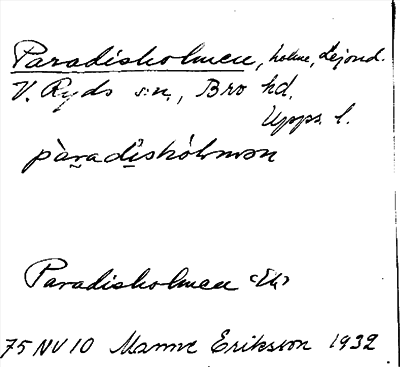 Paradisholmen, holme, Lejond.
V. Ryds sn., Bro hd.
Upps. l.
pàradi̥shólmən
Paradisholmen (Ek)
75 NV 10 Manne Eriksson 1932